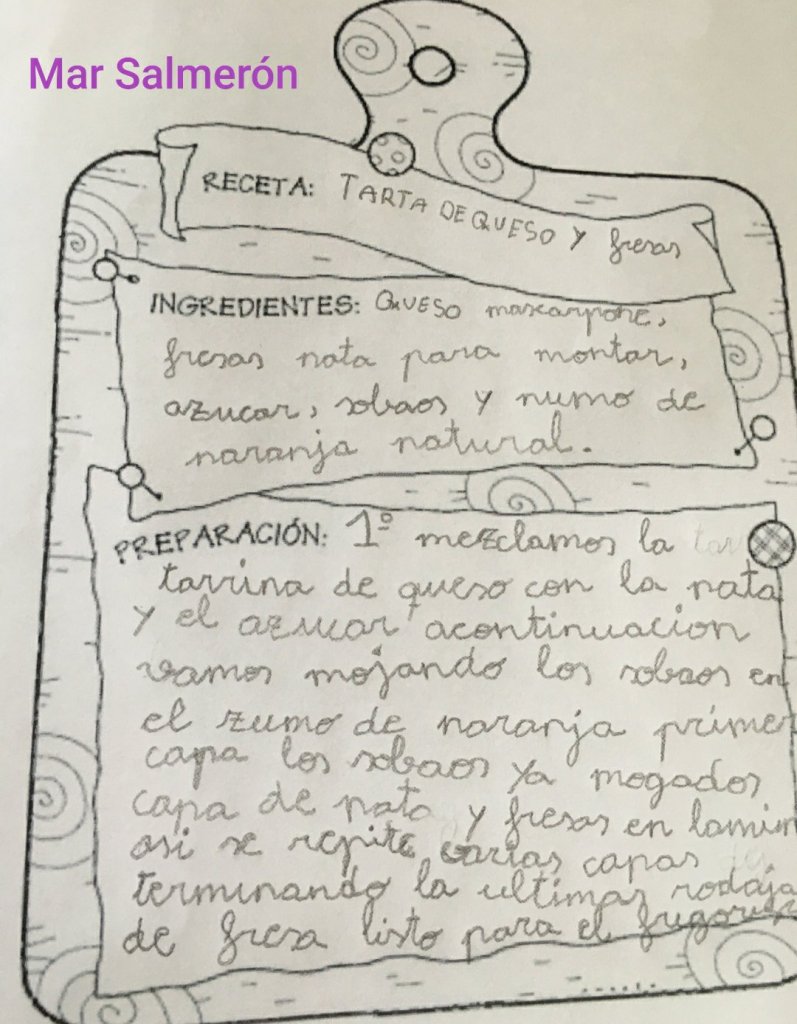 Mar Salmerón
RECETA: TARTA DE QUESO Y fresas
INGREDIENTES: QUESO mascarpone,
fresas nata para montar,
azucar, sobaos y numo de
naranja natural.
PREPARACIÓN: 1º mezclamos la
tarrina de queso con la nata
y el azucar acontinuacion
vamos mojando los sobaos en
el zumo de naranja primer
capa los sobaos ya mogados
capa de nata y fresas en lamin
asi se repite varias capas
terminando la ultima rodaja
de fresa listo para el